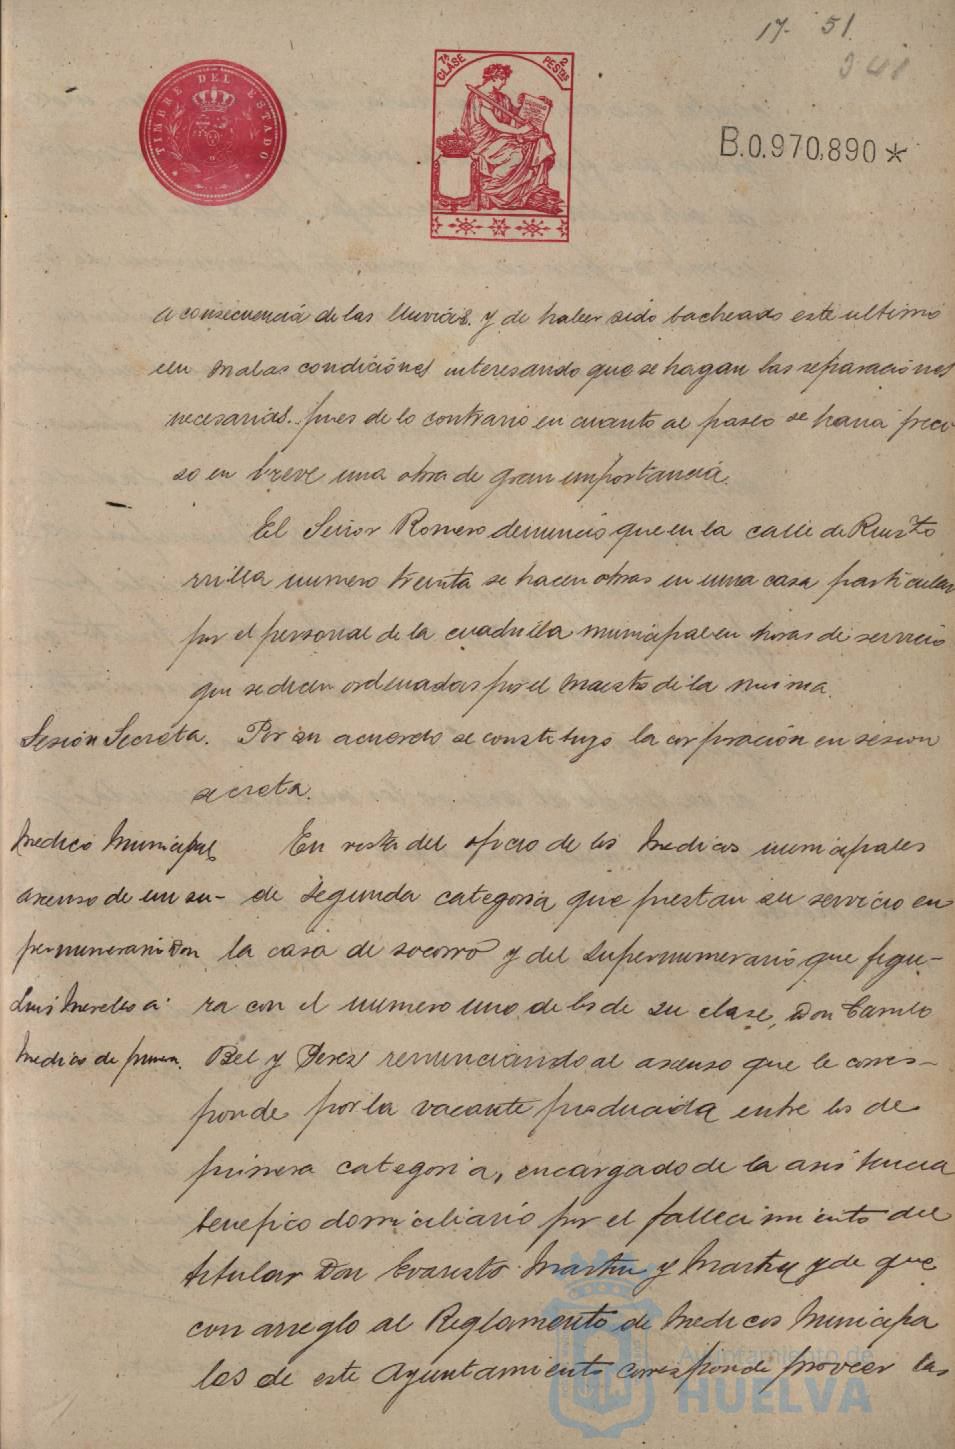 17. 51.
341
TIMBRE DEL ESTADO
7ª CLASE 2 PESTAS
B.0.970.890*
a consecuencia de las lluvias. y de haber sido bacheado este ultimo
en malas condiciones interesando que se hagan las reparaciones
necesarias. pues de lo contrario en cuanto al paseo se hara preci
so en breve una obra de gran importancia.
El Señor Romero denuncio que en la calle de
numero treinta se hacen obras en una casa particular
por el personal de la cuadrilla municipal en horas de servicio
que se dicen ordenadas por el Maestro de la misma.
Sesión Secreta. Por su acuerdo se constituyo la corporación en sesion
secreta.
Medico Municipal En vista del oficio de los Medicos municipales
ascenso de un su- de segunda categoria que prestan su servicio en
pernumerario Don la casa de socorro y del supernumerario que figu-
Luis a ra con el numero uno de los de su clase, Don Camilo
Medico de primera. Bel y Perez renunciando al ascenso que le corres-
ponde por la vacante producida entre los de
primera categoria, encargado de la asistencia
benefico domiciliario por el fallecimiento del
titular Don Evaristo Martin y Martin y de que
con arreglo al Reglamento de Medicos Municipa
les de este Ayuntamiento corresponde proveer las
Ayuntamiento de
HUELVA